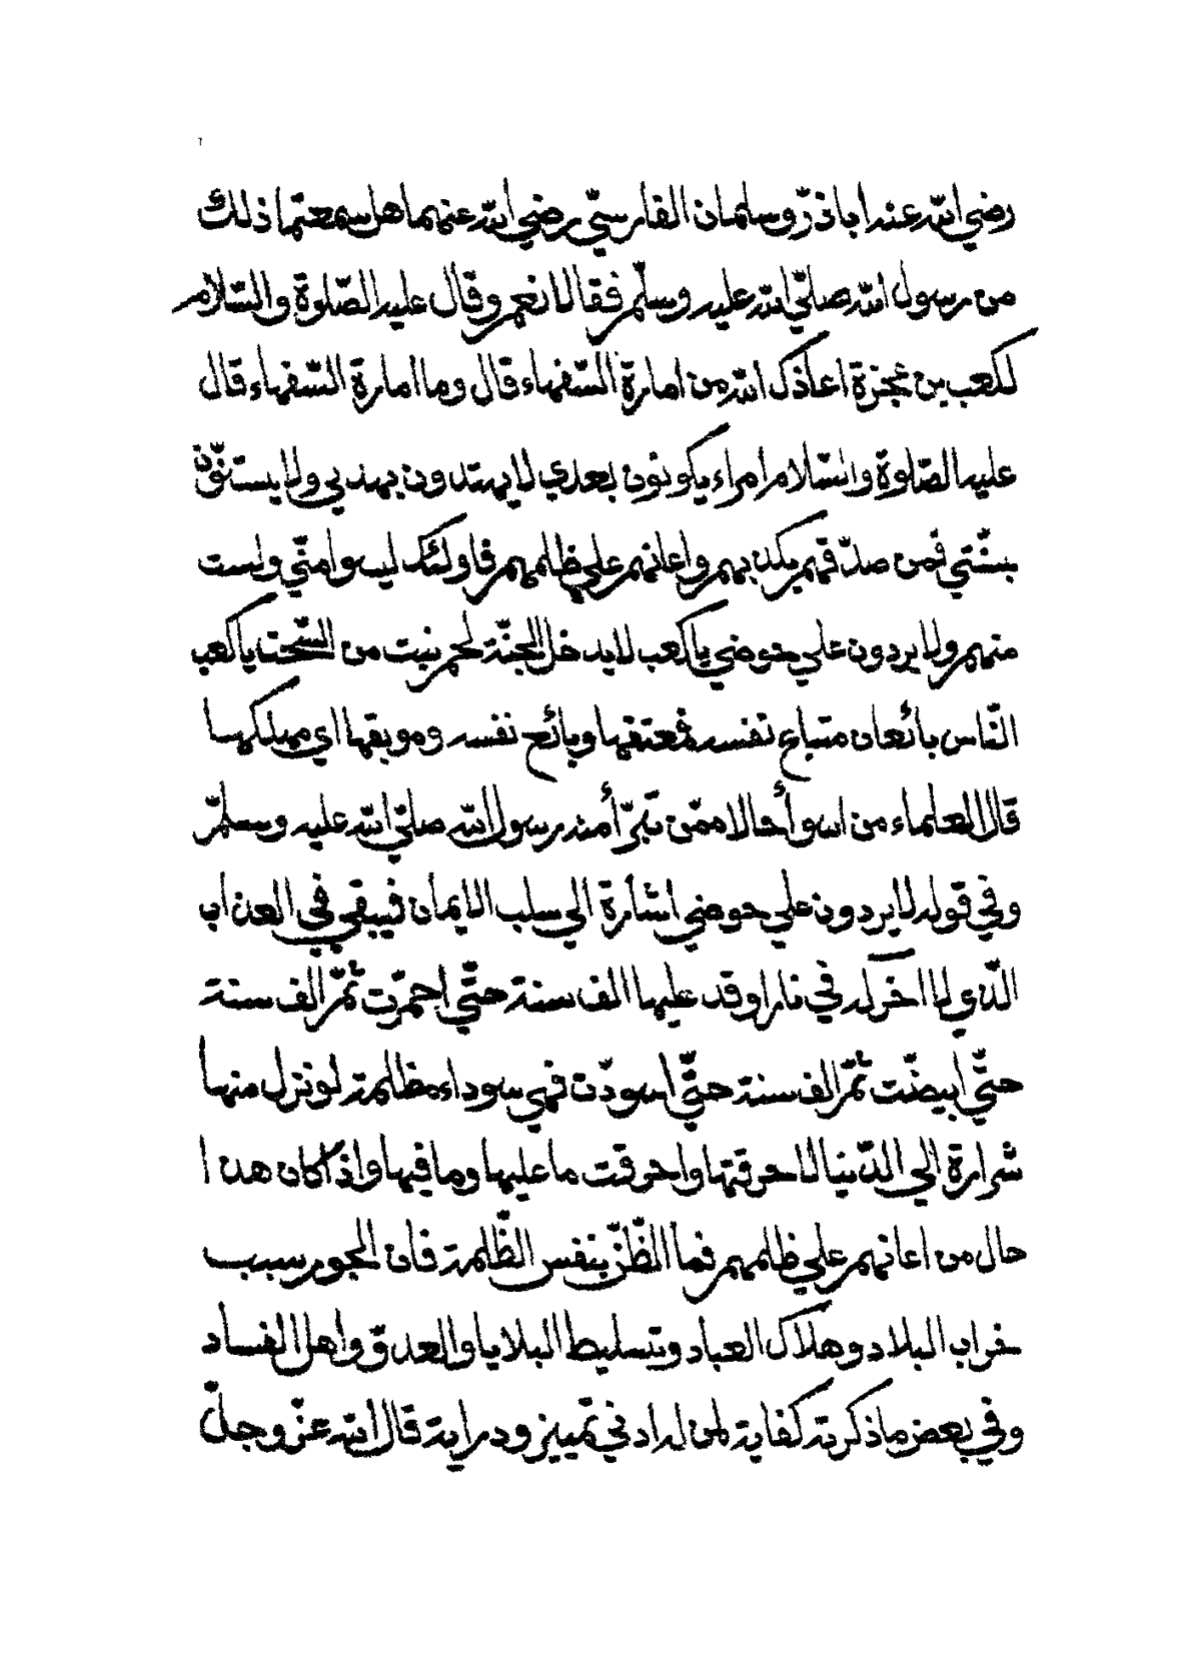 ٦
رضي الله عنه اباذرّ وسلمان الفارسيّ رضي الله عنهما هل سمعتما ذلك
من رسول الله صلّي الله عليه وسلّم فقالا نعم وقال عليه الصّلوة والسّلام
لكعب بن عجزة اعاذك الله من امارة السّفهاء قال وما امارة السّفهاء قال
عليه الصّلوة والسّلام امراء يكونون بعدي لا يهتدون بهديي ولا يستنّون
بسنّتي فمن صدّقهم بكذبهم واعانهم علي ظلمهم فاولئك ليسوا منّي ولست
منهم ولا يردون علي حوضي يا كعب لا يدخل الجنّة لحم نبت من السّحت يا كعب
النّاس بائعان مبتاع نفسه فمعتقها وبائع نفسه وموبقها اي مهلكها
قال العلماء من اسوأ حالا ممّن تبرّأ منه رسول الله صلّي الله عليه وسلّم
وفي قوله لا يردون علي حوضي اشارة الي سلب الايمان فيبقي في العذاب
الّذي لا اخر له في نار اوقد عليها الف سنة حتّي احمرّت ثمّ الف سنة
حتّي ابيضّت ثمّ الف سنة حتّي اسودّت فهي سوداء مظلمة لو نزل منها
شرارة الي الدّنيا لاحرقتها واحرقت ما عليها وما فيها واذا كان هذا
حال من اعانهم علي ظلمهم فما الظّنّ بنفس الظّلمة فان الجور سبب
خراب البلاد وهلاك العباد وتسليط البلايا والعدوّ واهل الفساد
وفي بعض ما ذكرته كفاية لمن له ادني تمييز ودراية قال الله عزّ وجلّ